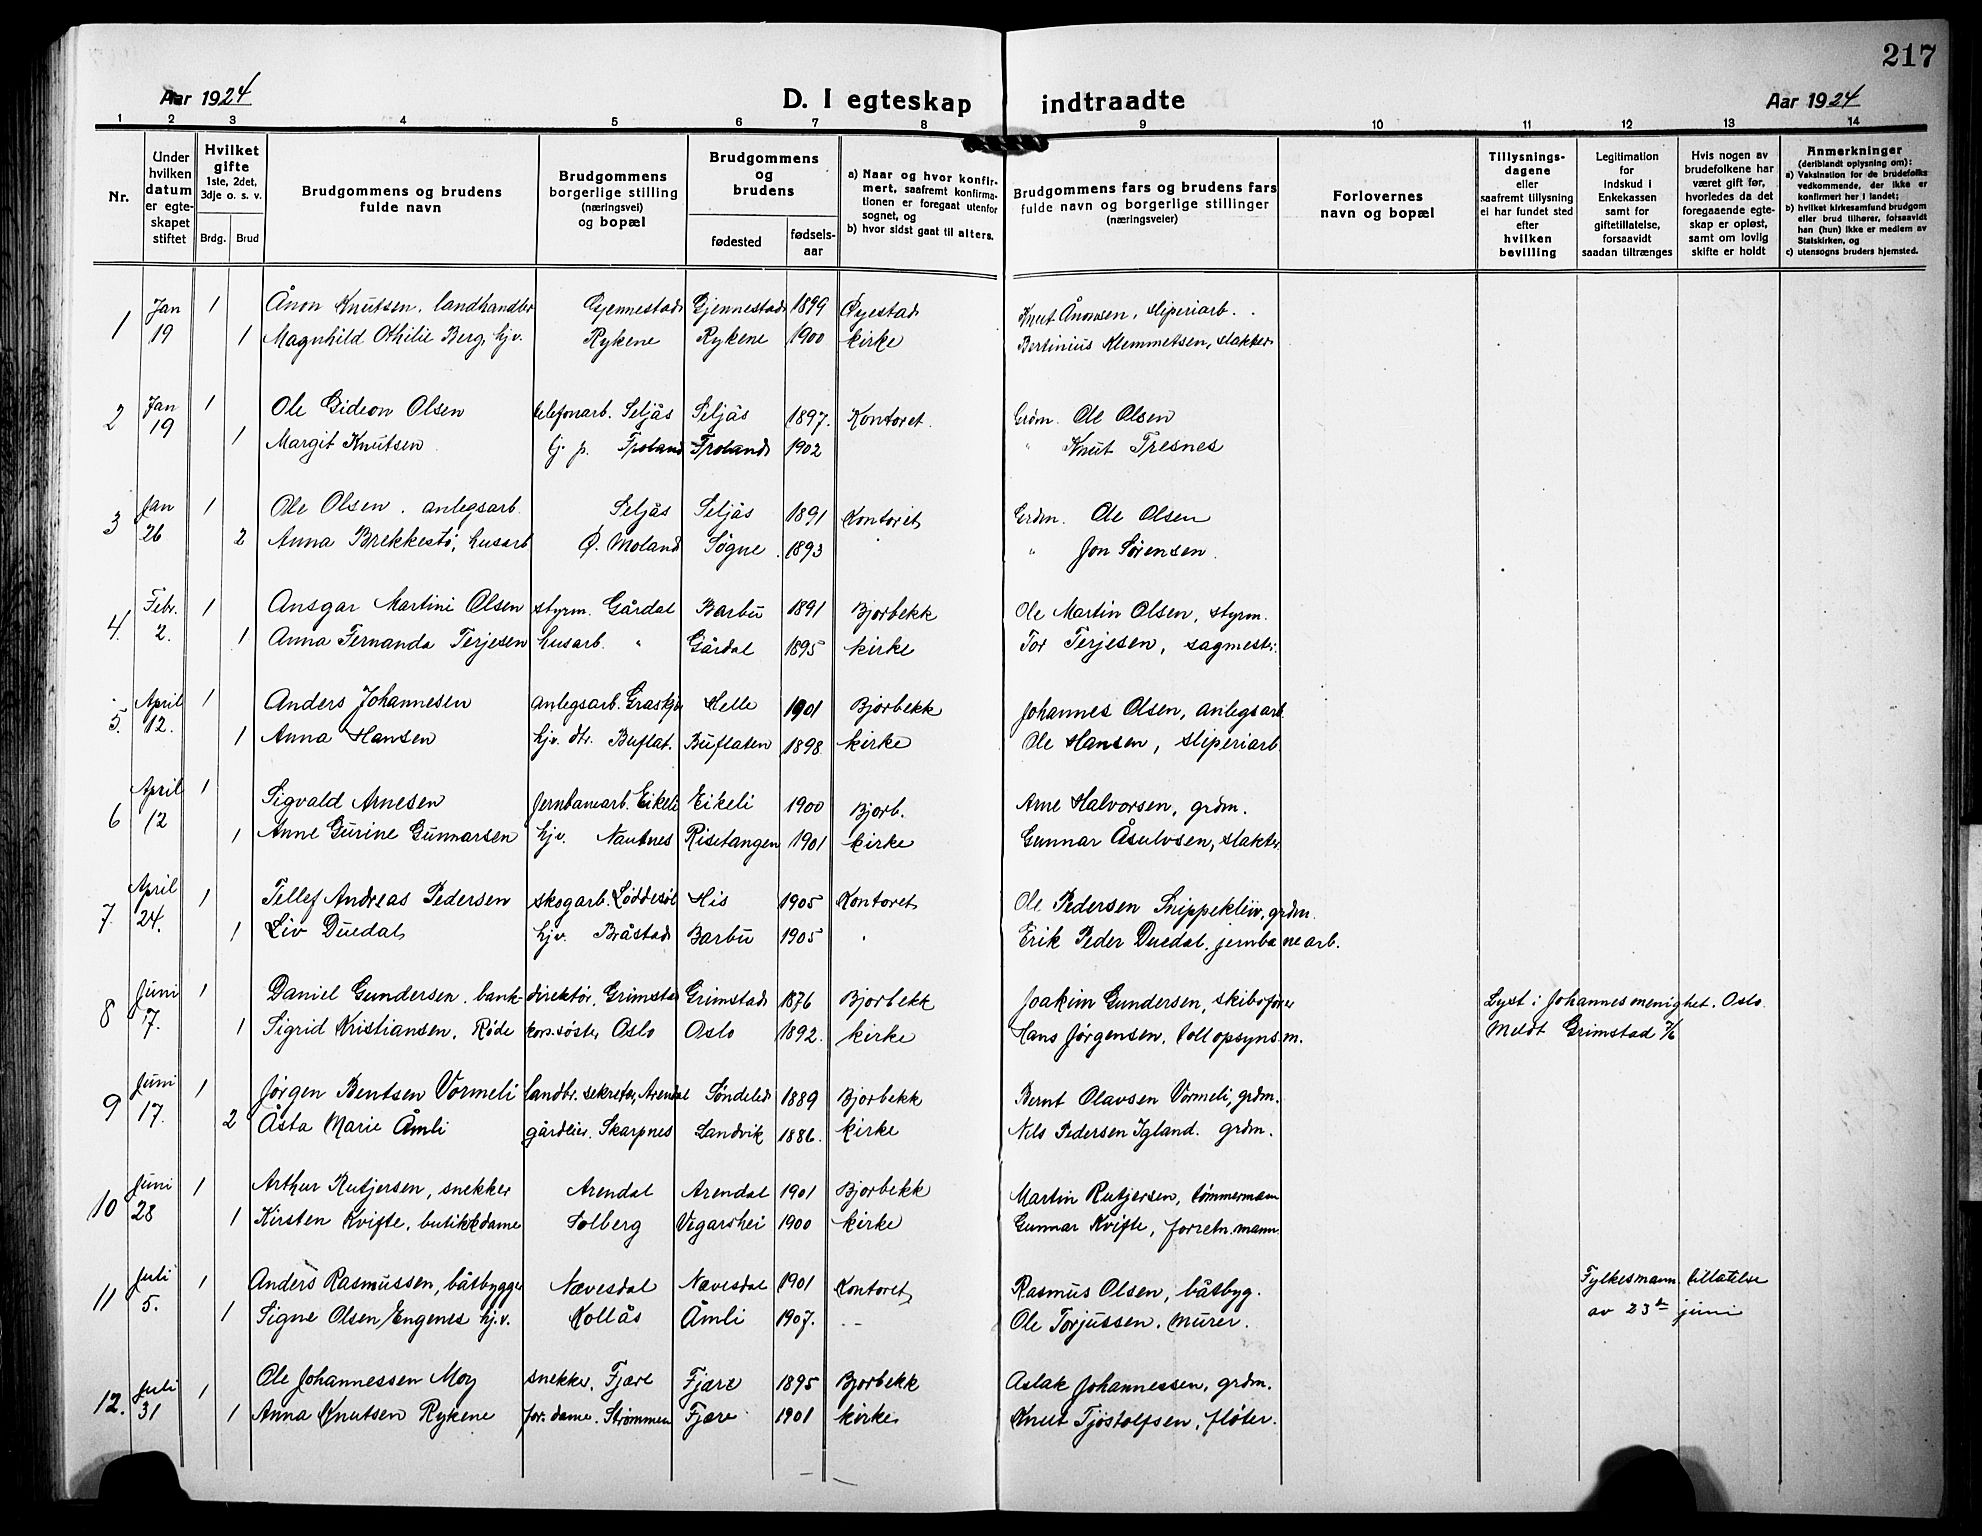 217
Aar 1924 D. I egteskap indtraadte Aar 1924
1 2 3 4 5 6 7 8 9 10 11 12 13 14
Nr.
Under hvilken datum er egteskapet stiftet
Hvilket gifte 1ste, 2det, 3dje o. s. v.
Brdg. Brud
Brudgommens og brudens fulde navn
Brudgommens borgerlige stilling (næringsvei) og bopæl
Brudgommens og brudens
fødested fødselsaar
a) Naar og hvor konfirmert, saafremt konfirmationen er foregaat utenfor sognet, og
b) hvor sidst gaat til alters.
Brudgommens fars og brudens fars fulde navn og borgerlige stillinger (næringsveier)
Forlovernes navn og bopæl
Tillysningsdagene eller saafremt tillysning ei har fundet sted efter hvilken bevilling
Legitimation for Indskud i Enkekassen samt for giftetillatelse, forsaavidt saadan tiltrænges
Hvis nogen av brudefolkene har været gift før, hvorledes da det foregaaende egteskap er opløst, samt om lovlig skifte er holdt
Anmerkninger (deriblandt oplysning om):
a) Vaksination for de brudefolks vedkommende, der ikke er konfirmert her i landet;
b) hvilket kirkesamfund brudgom eller brud tilhører, forsaavidt han (hun) ikke er medlem av Statskirken, og
c) utensogns bruders hjemsted.
1 Jan 19 1 Ånon Knutsen, landhandler Gjennestad Gjennestad 1899 Øyestad Knut Ånonsen, sliperiarb.
1 Magnhild Othilie Berg, hjv. Rykene Rykene 1900 kirke Bertinius Klemmetsen, slakter
2 Jan 19 1 Ole Gideon Olsen telefonarb. Seljås Seljås 1897. Kontoret. Grdm. Ole Olsen
1 Margit Knutsen tj. p. Froland Froland 1902 " Knut Tresnes
3 Jan 26 1 Ole Olsen. anlegsarb. Seljås Seljås 1891 Kontoret Grdm. Ole Olsen
2 Anna Brekkestø, husarb Ø. Moland Søgne. 1893 " Jon Sørensen.
4. Febr. 2. 1 Ansgar Martini Olsen styrm. Gårdal Barbu 1891 Bjorbekk Ole Martin Olsen, styrm.
1 Anna Fernanda Terjesen husarb. " Gårdal 1895 kirke Tor Terjesen, sagmester
5. April 12. 1 Anders Johannesen anlegsarb. Helle 1901 Bjorbekk Johannes Olsen, anlegsarb.
1 Anna Hansen hjv. dtr. Buflat. Buflaten 1898 kirke Ole Hansen, sliperiarb
6 April 12 1 Sigvald Arnesen Jernbanearb. Eikeli Eikeli 1900 Bjorb. Arne Halvorsen, grdm.
1 Anne Gurine Gunnarsen hjv. Nautnes Risetangen 1901 kirke Gunnar Åsulvsen, slakter
7. April 24. 1 Tellef Andreas Pedersen skogarb. Løddesøl His 1905 Kontoret Ole Pedersen Snippekleiv, grdm.
1 Liv Duedal hjv. Bråstad Barbu 1905 " Erik Peder Duedal, jernbanearb.
8 Juni 7. 1 Daniel Gundersen. bankdirektør. Grimstad Grimstad 1876 Bjorbekk Joakim Gundersen, skibsfører Lyst i Johannes menighet. Oslo.
1 Sigrid Kristiansen, Røde kors.søster, Oslo Oslo 1892. kirke Hans Jørgensen, tollopsynsm. Meldt Grimstad 7/6
9 Juni 17. 1 Jørgen Bentsen Vormeli landbr. sekretær, Arendal Søndeled 1889 Bjorbekk Bernt Olavsen Vormeli, grdm.
2 Åsta Marie Åmli gårdeier. Skarpnes Landvik 1886. kirke Nils Pedersen Igland. grdm.
10 Juni 28 1 Arthur Rutjersen, snekker Arendal Arendal 1901 Bjorbekk Martin Rutjersen, tømmermann
1 Kirsten Kvifte, butikkdame Solberg Vegarshei 1900 kirke Gunnar Kvifte, forretn.mann
11 Juli 5. 1 Anders Rasmussen, båtbygger Nævesdal Nævesdal 1901 Kontoret Rasmus Olsen, båtbyg. Fylkesmann. tillatelse
1 Signe Olsen/Engenes hj.v. Kollås Åmli 1907. - - Ole Torjussen. murer. av 23de juni
12. Juli 31 1 Ole Johannessen Moy snekker. Fjære Fjære 1895 Bjorbekk Aslak Johannessen, grdm.
1 Anna Knutsen Rykene for. dame. Strømmen Fjære 1901 kirke Knut Tjøstolfsen, fløter.